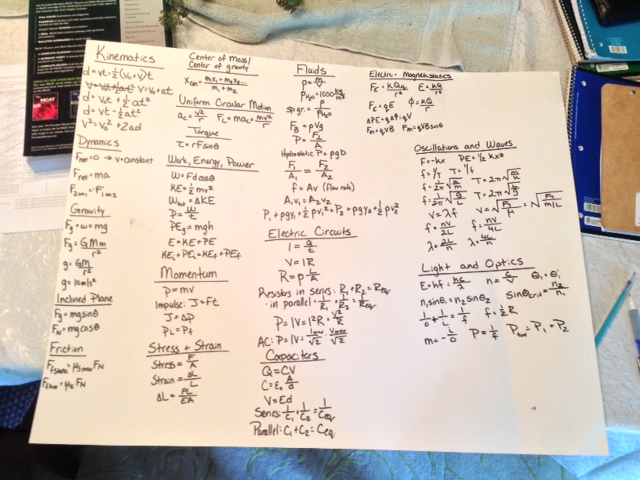 Kinematics
d = vt = ½(v₀+v)t
v = v₀ + at
d = v₀t + ½at²
d = vt - ½at²
v² = v₀² + 2ad
Dynamics
Fnet = 0 → v = constant
Fnet = ma
F2on1 = -F1on2
Gravity
Fg = w = mg
Fg = GMm/r²
g = GM/r²
g = 10m/s²
Inclined Plane
Fg = mgsinθ
FN = mgcosθ
Friction
Ffstatic = μs max FN
Ffkin = μk FN
Center of Mass/
Center of gravity
xcm = m₁x₁ + m₂x₂... / m₁ + m₂
Uniform Circular Motion
ac = v²/r Fc = mac = mv²/r
Torque
τ = rFsinθ
Work, Energy, Power
W = Fdcosθ
KE = ½mv²
Wtot = ΔKE
P = W/t
PEg = mgh
E = KE + PE
KEi + PEi = KEf + PEf
Momentum
p = mv
Impulse: J = Ft
J = Δp
pi = pf
Stress + Strain
Stress = F/A
Strain = ΔL/L
ΔL = FL/EA
Fluids
ρ = m/V
ρH₂O = 1000 kg/m³
sp.gr. = ρ/ρH₂O
FB = ρVg
P = F/A
Hydrostatic P = ρgD
F₁/A₁ = F₂/A₂
f = Av (flow rate)
A₁v₁ = A₂v₂
P₁ + ρgy₁ + ½ρv₁² = P₂ + ρgy₂ + ½ρv₂²
Electric Circuits
I = Q/t
V = IR
R = ρ L/A
Resistors in series: R₁ + R₂ = Req
in parallel = 1/R₁ + 1/R₂ = 1/Req
P = IV = I²R = V²/R
AC: P = IV = Imax/√2 · Vmax/√2
Capacitors
Q = CV
C = ε₀ A/d
V = Ed
Series: 1/C₁ + 1/C₂ = 1/Ceq
Parallel: C₁ + C₂ = Ceq
Electro-Magnetostatics
Fc = kQq/r² E = kQ/r²
Fc = qE Φ = kQ/r
ΔPE = qΔΦ = qV
Fm = qvB Fm = qvBsinθ
Oscillations and Waves
F = -kx PE = ½kx²
f = 1/T T = 1/f
v = λf
f = nv/2L f = nv/4L
λ = 2L/n λ = 4L/n
Light and Optics
E = hf = hc/λ n = c/v θi = θi
n₁sinθ₁ = n₂sinθ₂ sinθcrit = n₂/n₁
1/o + 1/i = 1/f f = ½R
m = -i/o P = 1/f Ptot = P₁ + P₂
MCAT